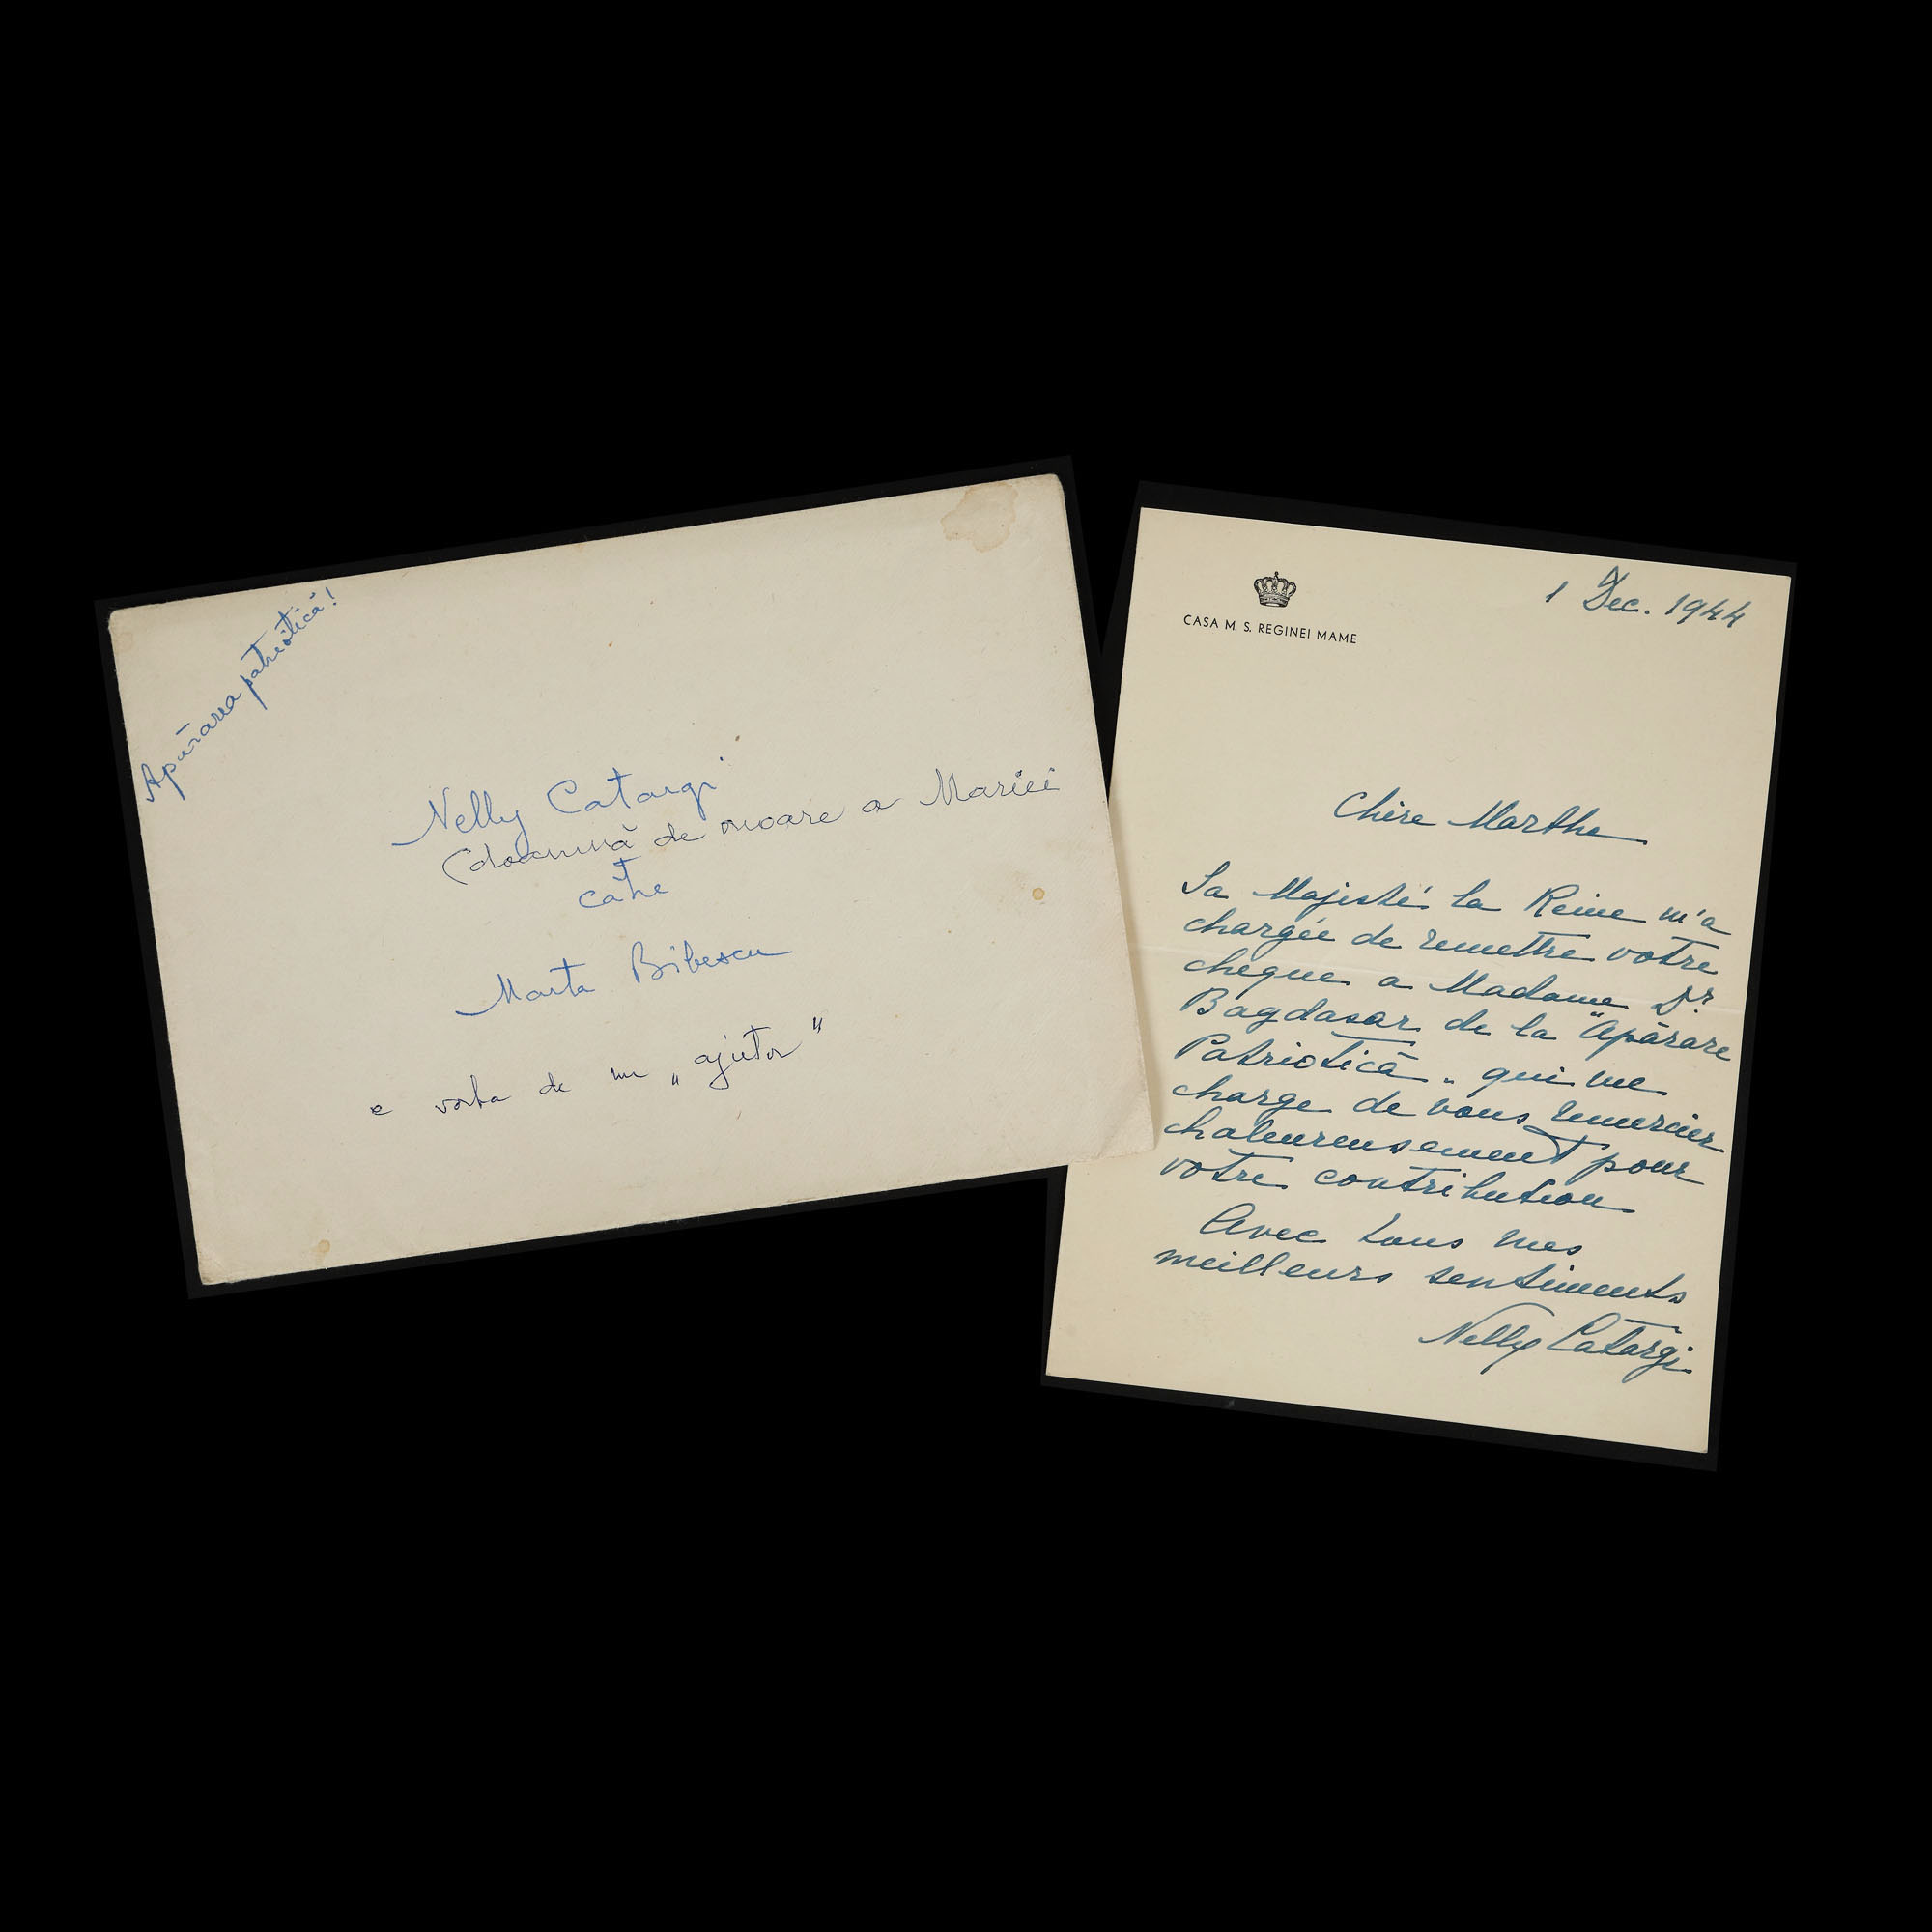 Apărarea patriotică!
Nelly Catargi
(doamnă de onoare a Mariei
către
Marta Bibescu
e vorba de un „ajutor"
CASA M. S. REGINEI MAME
1 Dec. 1944
Chère Marthe
Sa Majesté la Reine m'a
chargée de remettre votre
cheque a Madame Dr.
Bagdasar de la "Apărare
Patriotică" qui me
charge de vous remercier
chaleureusement pour
votre contribution
Avec tous mes
meilleurs sentiments
Nelly Catargi